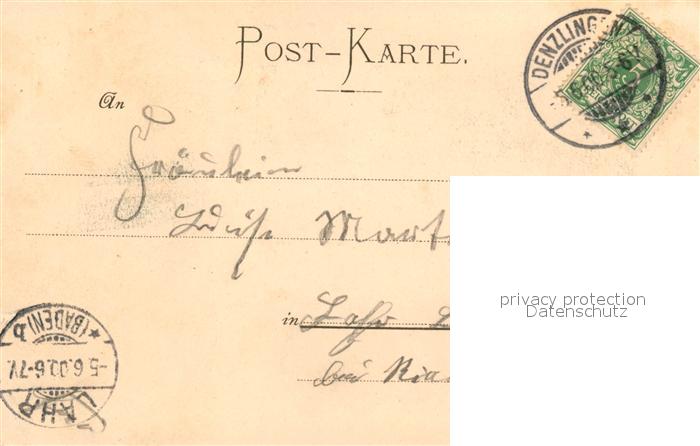 POST-KARTE.
DENZLINGEN
An
Fräulein
Luise Mart
in Lahr
bei
* (BADEN) b *
5.6.00.6-7V.
LAHR
privacy protection
Datenschutz